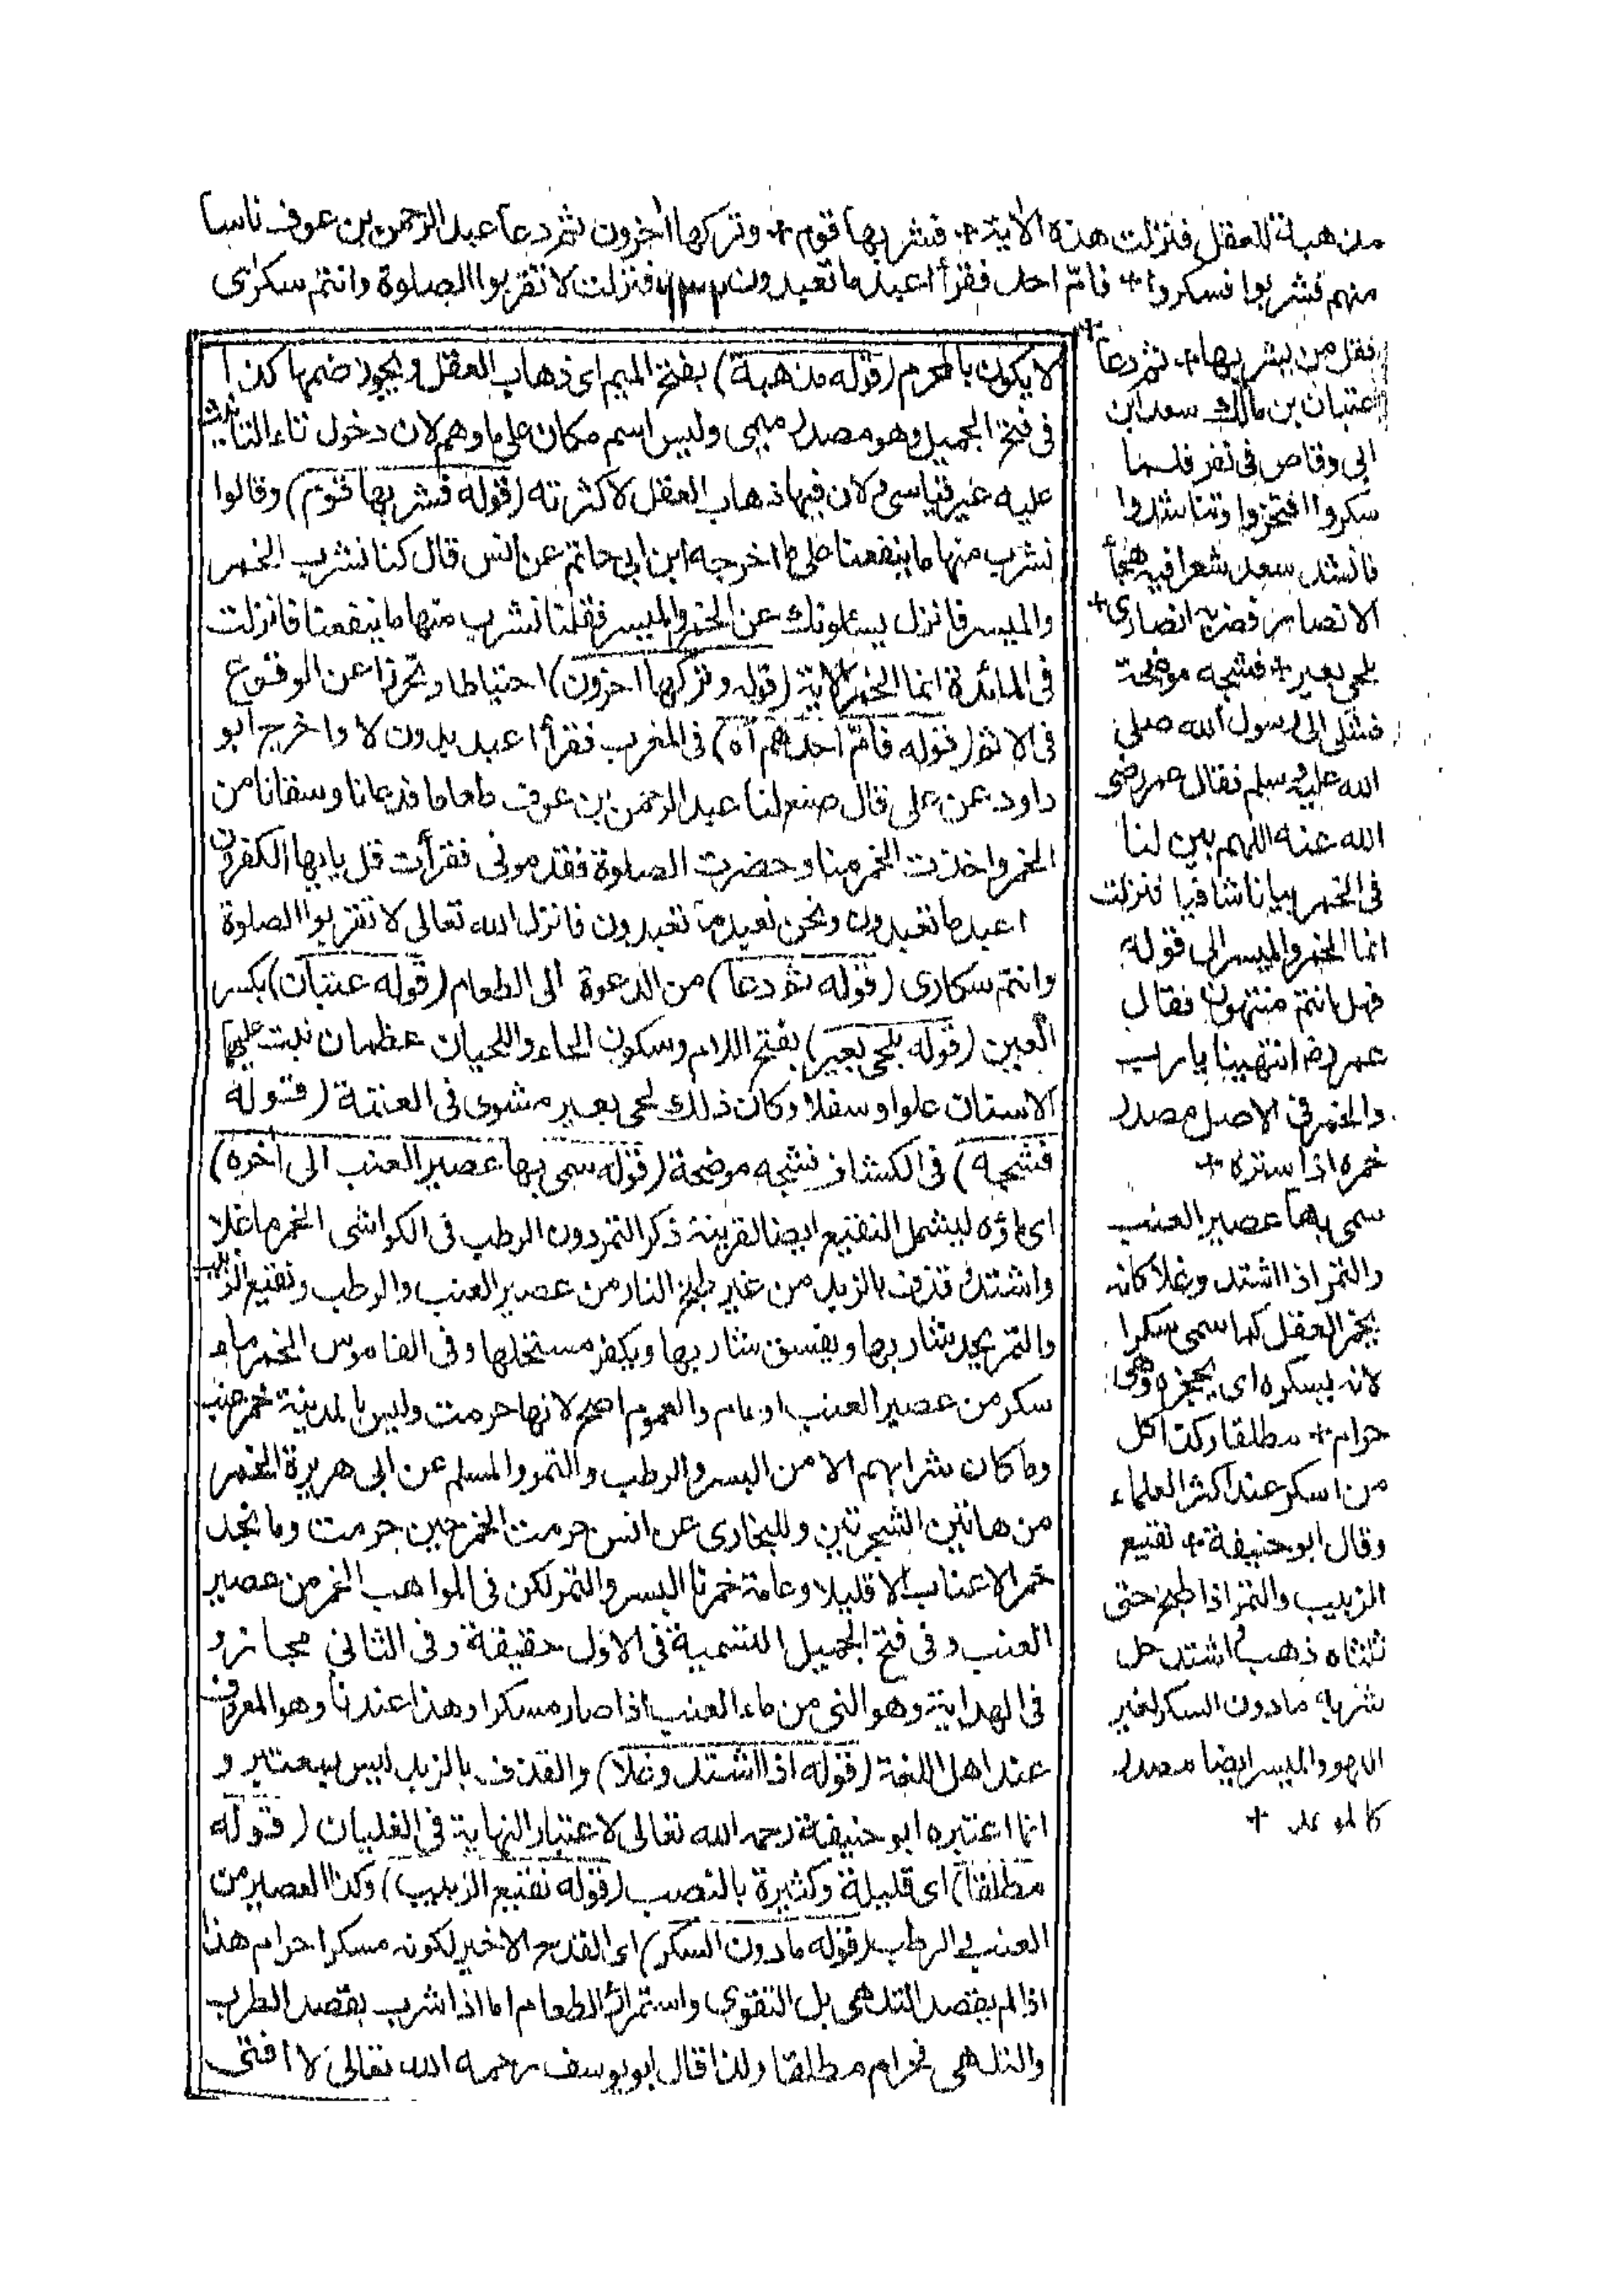 مذهبة للعقل فنزلت هذه الآية + فشربها قوم + وتركها اخرون ثم دعا عبد الرحمن بن عوف ناسا
منهم فشربوا فسكروا + فامّ احد فقرأ اعبد ما تعبدون فنزلت لا تقربوا الصلوة وانتم سكرٰى
فقل من يشربها + ثم دعا +
عتبان بن مالك سعد ابن
ابى وقاص فى نفر فلما
سكروا افتخروا وتناشدوا
فانشد سعد شعرا فيه هجاء
الانصار فضربه انصارى +
بلحى بعير + فشجه موضحة
فشكى الى رسول الله صلى
الله عليه وسلم فقال عمر رضى
الله عنه اللهم بين لنا
فى الخمر بيانا شافيا فنزلت
انما الخمر والميسر الى قوله
فهل انتم منتهون فقال
عمر رض انتهينا يا رب
والخمر فى الاصل مصدر
خمره اذا ستره +
سمى بها عصير العنب
والتمر اذا اشتد وغلا كانه
يخمر العقل كما سمى سكرا
لانه يسكره اى يحجزه وهى
حرام + مطلقا وكذا كل
من اسكر عند اكثر العلماء
وقال ابو حنيفة + نقيع
الزبيب والتمر اذا طبخ حتى
ثلثاه ذهب اشتد حل
شربه ما دون السكر لغير
اللهو والميسر ايضا مصدر
كالموعد +
لا يكون بالمحرم (قوله مذهبة) بفتح الميم اى ذهاب العقل ويجوز ضمها كذا
فى فتح الجميل وهو مصدر ميمى وليس اسم مكان على ما وهم لان دخول تاء التانيث
عليه غير قياسى ولان فيها ذهاب العقل لا كثرته (قوله فشربها قوم) وقالوا
نشرب منها ما ينفعنا على ما اخرجه ابن ابى حاتم عن انس قال كنا نشرب الخمر
والميسر فانزل يسئلونك عن الخمر والميسر فقلنا نشرب منها ما ينفعنا فانزلت
فى المائدة انما الخمر الاية (قوله وتركها اخرون) احتياطا وتحرزا عن الوقوع
فى الاثم (قوله فامّ احدهم اه) فى المغرب فقرأ اعبد بدون لا واخرج ابو
داود عن على قال صنع لنا عبد الرحمن بن عوف طعاما فدعانا وسقانا من
الخمر واخذت الخمر منا وحضرت الصلوة فقدمونى فقرأت قل يا يها الكفرون
اعبد ما تعبدون ونحن نعبد ما تعبدون فانزل الله تعالى لا تقربوا الصلوة
وانتم سكارى (قوله ثم دعا) من الدعوة الى الطعام (قوله عتبان) بكسر
العين (قوله بلحى بعير) بفتح اللام وسكون الحاء واللحيان عظمان نبت عليهما
الاسنان علوا وسفلا وكان ذلك لحى بعير مشوى فى (قوله
فشجه) فى الكشاف فشجه موضحة (قوله سمى بها عصير العنب الى اخره)
اى ماؤه ليشمل النقيع ايضا لقرينة ذكر التمر دون الرطب فى الكواشى الخمر ما غلا
واشتد وقذف بالزبد من غير طبخ النار من عصير العنب والرطب ونقيع الزبيب
والتمر يحد شاربها ويفسق شاربها ويكفر مستحلها وفى القاموس الخمر ما
سكر من عصير العنب او عام والعموم اصح لانها حرمت وليس بالمدينة خمر عنب
وما كان شرابهم الا من البسر والرطب والتمر والمسلم عن ابى هريرة الخمر
من هاتين الشجرتين وللبخارى عن انس حرمت الخمر حين حرمت وما نجد
خمر الاعناب الا قليلا وعامة خمرنا البسر والتمر لكن فى المواهب الخمر من عصير
العنب وفى فتح الجميل التسمية فى الاول حقيقة وفى الثانى مجاز و
فى الهداية وهو النى من ماء العنب اذا صار مسكرا وهذا عندنا وهو المعروف
عند اهل اللغة (قوله اذا اشتد وغلا) والقذف بالزبد ليس بمعتبر و
انما اعتبره ابو حنيفة رحمه الله تعالى لاعتبار النهاية فى الغليان (قوله
مطلقا) اى قليلة وكثيرة بالنصب (قوله نقيع الزبيب) وكذا العصير من
العنب والرطب (قوله ما دون السكر) اى القدح الاخير لكونه مسكرا حرام هذا
اذا لم يقصد التلهى بل التقوى واستمراء الطعام اما اذا شرب بقصد الطرب
والتلهى فحرام مطلقا ولذا قال ابو يوسف رحمه الله تعالى لا افتى